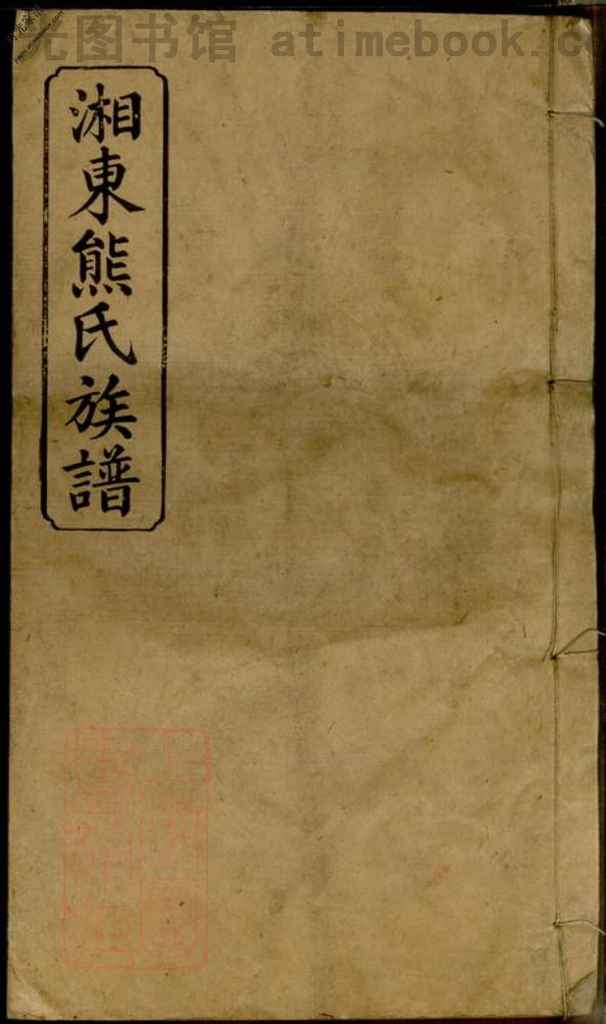 光图书馆 atimebook.c
湘東熊氏族譜